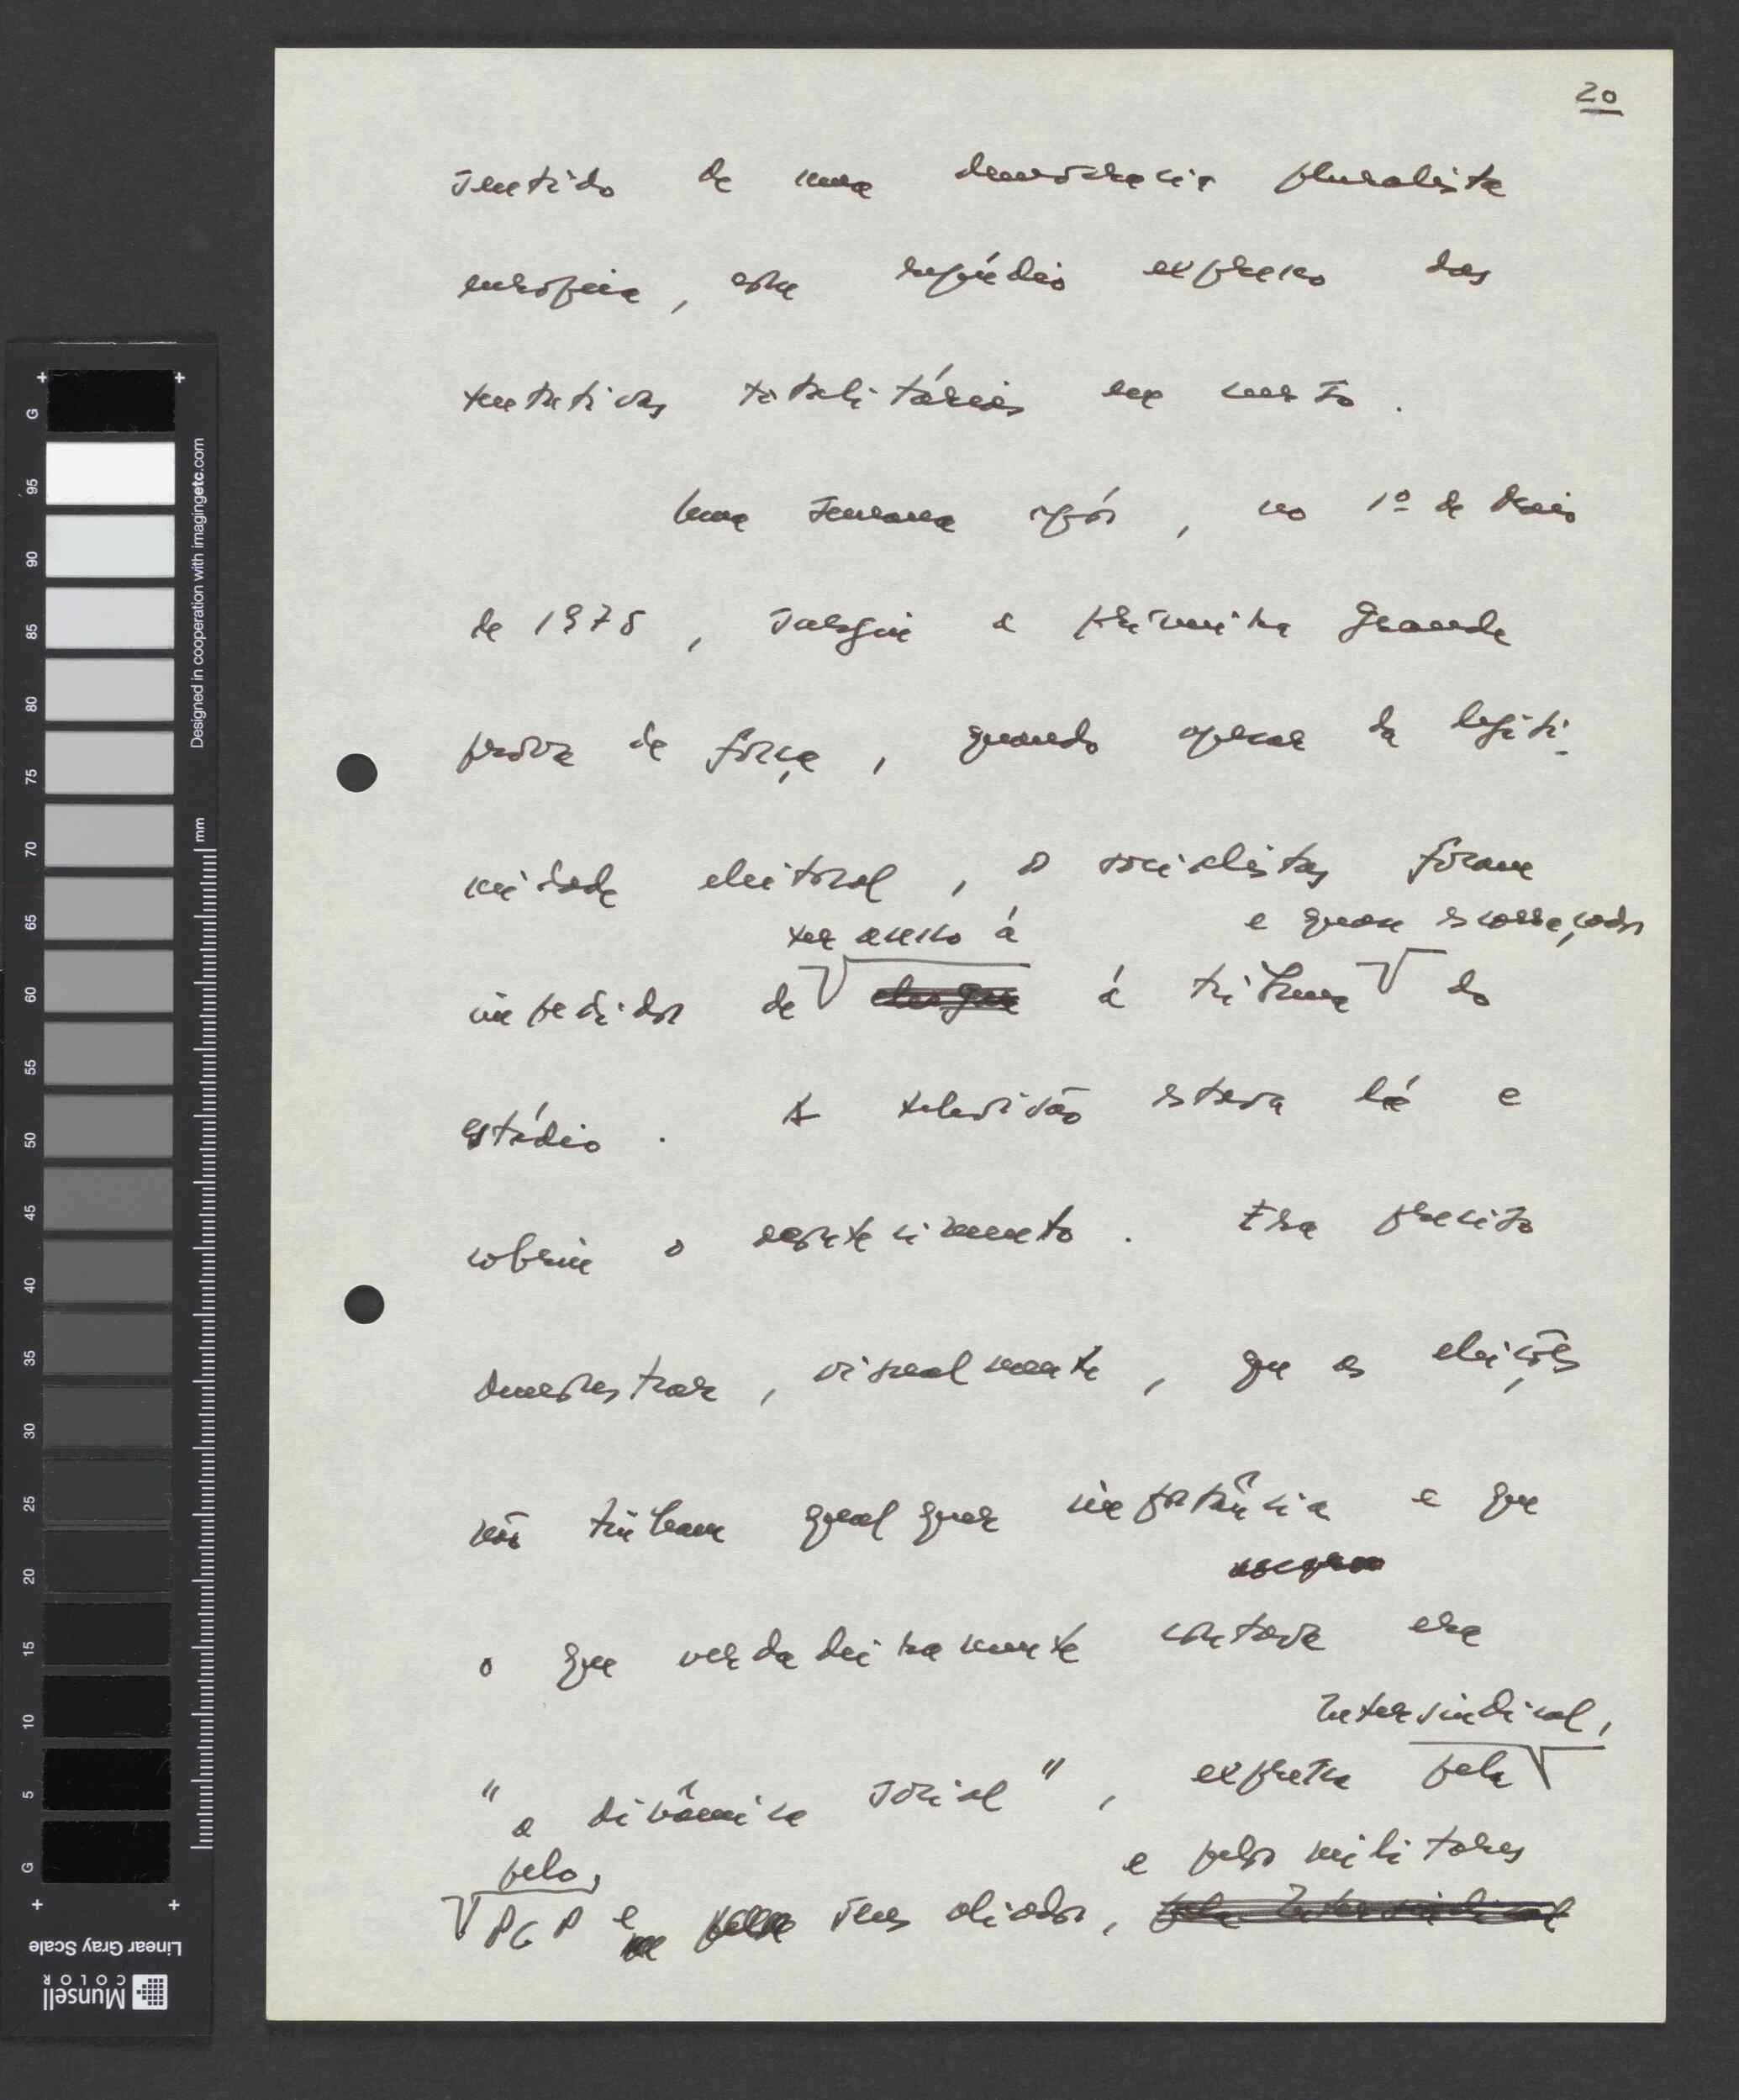 20
sentido de uma democracia pluralista
europeia, este repúdio expresso das
tentativas totalitárias em curso.
Uma semana após, no 1º de Maio
de 1975, surgiu a primeira grande
prova de força, quando apesar da legiti-
midade eleitoral, os socialistas foram
ter acesso à
e quase escorraçados
impedidos de chegar à tribuna do
estádio. A televisão estava lá e
cobriu o acontecimento. Era preciso
demonstrar, visualmente, que as eleições
não tinham qualquer importância e que
o que verdadeiramente contava era
Intersindical,
"a dinâmica social", expressa pela
pelo,
e pelos militares
PCP e seus aliados, pela Intersindical
Designed in cooperation with imagingetc.com
mm
G
95
90
85
80
75
70
65
60
55
50
45
40
35
30
25
20
15
10
5
G
Linear Gray Scale
Munsell
COLOR